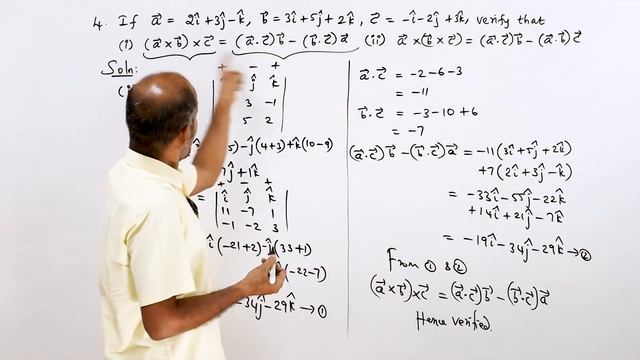 4. If a⃗ = 2î+3ĵ-k̂, b⃗ = 3î+5ĵ+2k̂, c⃗ = -î-2ĵ+3k̂, verify that
(i) (a⃗×b⃗)×c⃗ = (a⃗.c⃗)b⃗ - (b⃗.c⃗)a⃗ (ii) a⃗×(b⃗×c⃗) = (a⃗.c⃗)b⃗ - (a⃗.b⃗)c⃗
Soln:
+ - +
ĵ k̂
3 -1
5 2
5) - ĵ(4+3) + k̂(10-9)
7ĵ + 1k̂
+ - +
= | î ĵ k̂ |
11 -7 1
-1 -2 3
î(-21+2) - ĵ(33+1)
(-22-7)
-34ĵ - 29k̂ → ①
a⃗.c⃗ = -2-6-3
= -11
b⃗.c⃗ = -3-10+6
= -7
(a⃗.c⃗)b⃗ - (b⃗.c⃗)a⃗ = -11(3î+5ĵ+2k̂)
+7(2î+3ĵ-k̂)
= -33î-55ĵ-22k̂
+14î+21ĵ-7k̂
= -19î-34ĵ-29k̂ → ②
From ① & ②
(a⃗×b⃗)×c⃗ = (a⃗.c⃗)b⃗ - (b⃗.c⃗)a⃗
Hence verified.